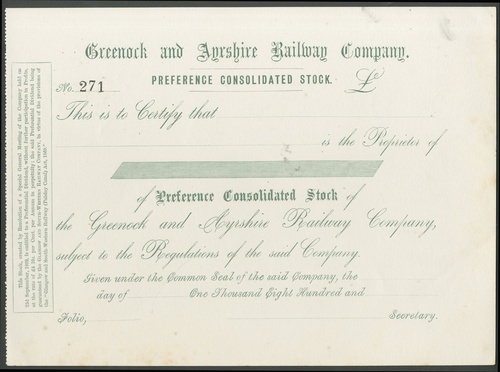 Greenock and Ayrshire Railway Company.
PREFERENCE CONSOLIDATED STOCK.
No. 271 £
This is to Certify that
is the Proprietor of
of Preference Consolidated Stock of
the Greenock and Ayrshire Railway Company,
subject to the Regulations of the said Company.
Given under the Common Seal of the said Company, the
day of One Thousand Eight Hundred and
Folio, Secretary.
This Stock, created by Resolution of a Special General Meeting of the Company held on
September, is entitled to a Preferential Dividend, without further participation in Profits,
at the rate of per Cent. per Annum in perpetuity; the said Preferential Dividend being
guaranteed by the Glasgow and South-Western Railway Company, in virtue of the provisions of
the "Glasgow and South-Western Railway Act,